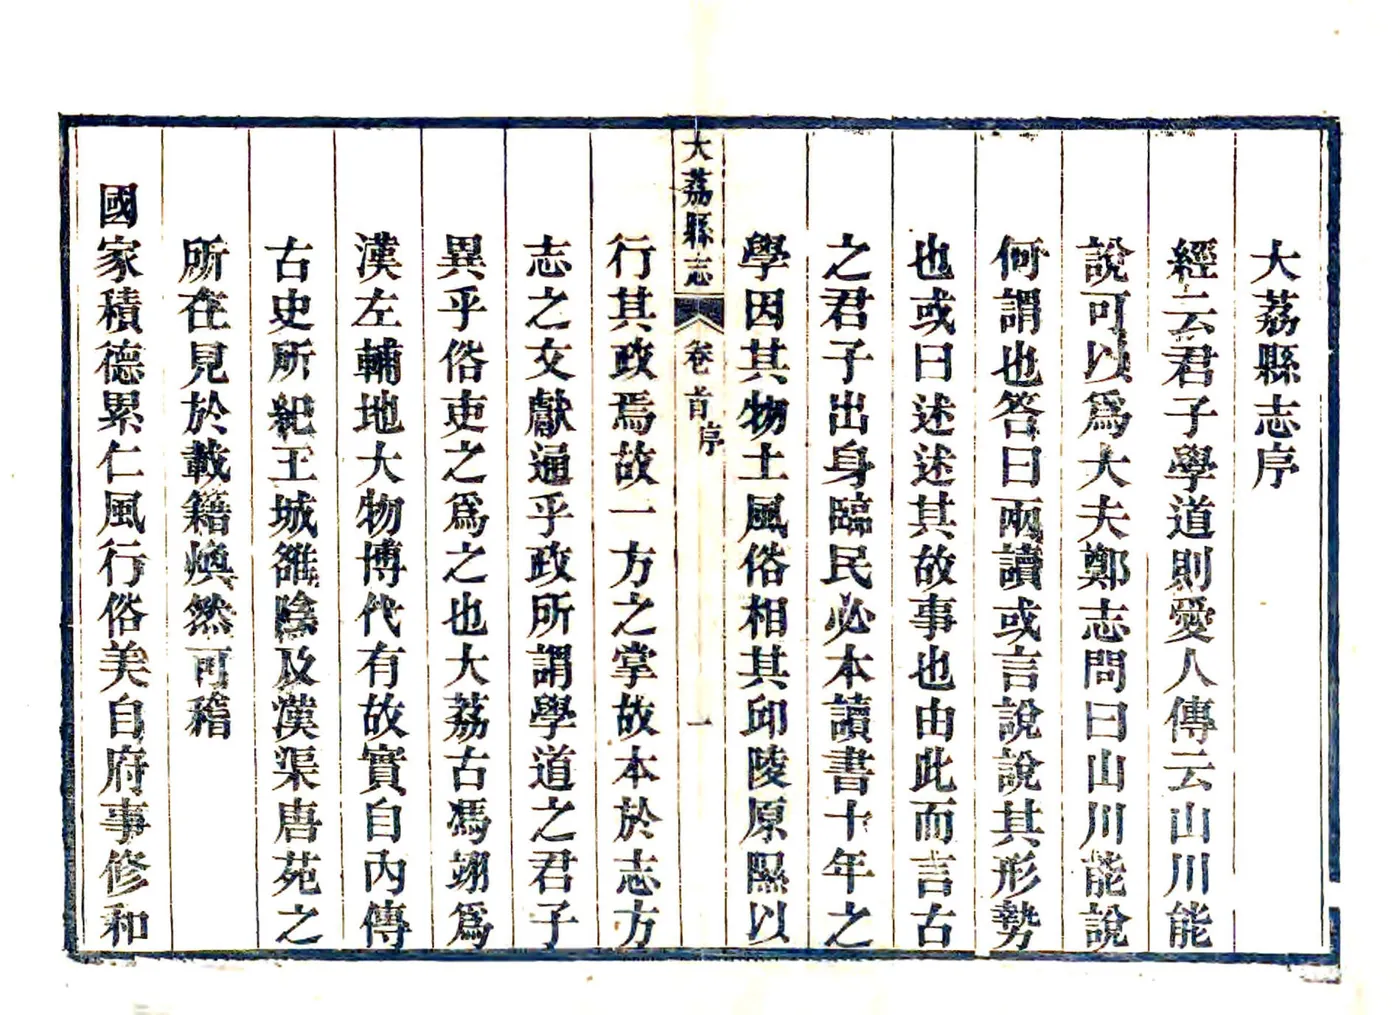 大荔縣志序
經云君子學道則愛人傳云山川能
說可以爲大夫鄭志問曰山川能說
何謂也答曰兩讀或言說說其形勢
也或曰述述其故事也由此而言古
之君子出身臨民必本讀書十年之
學因其物土風俗相其邱陵原隰以
大荔縣志 卷首 序 一
行其政焉故一方之掌故本於志方
志之文獻通乎政所謂學道之君子
異乎俗吏之爲之也大荔古馮翊爲
漢左輔地大物博代有故實自內傳
古史所紀王城雒陰及漢渠唐苑之
所在見於載籍煥然可稽
國家積德累仁風行俗美自府事修和